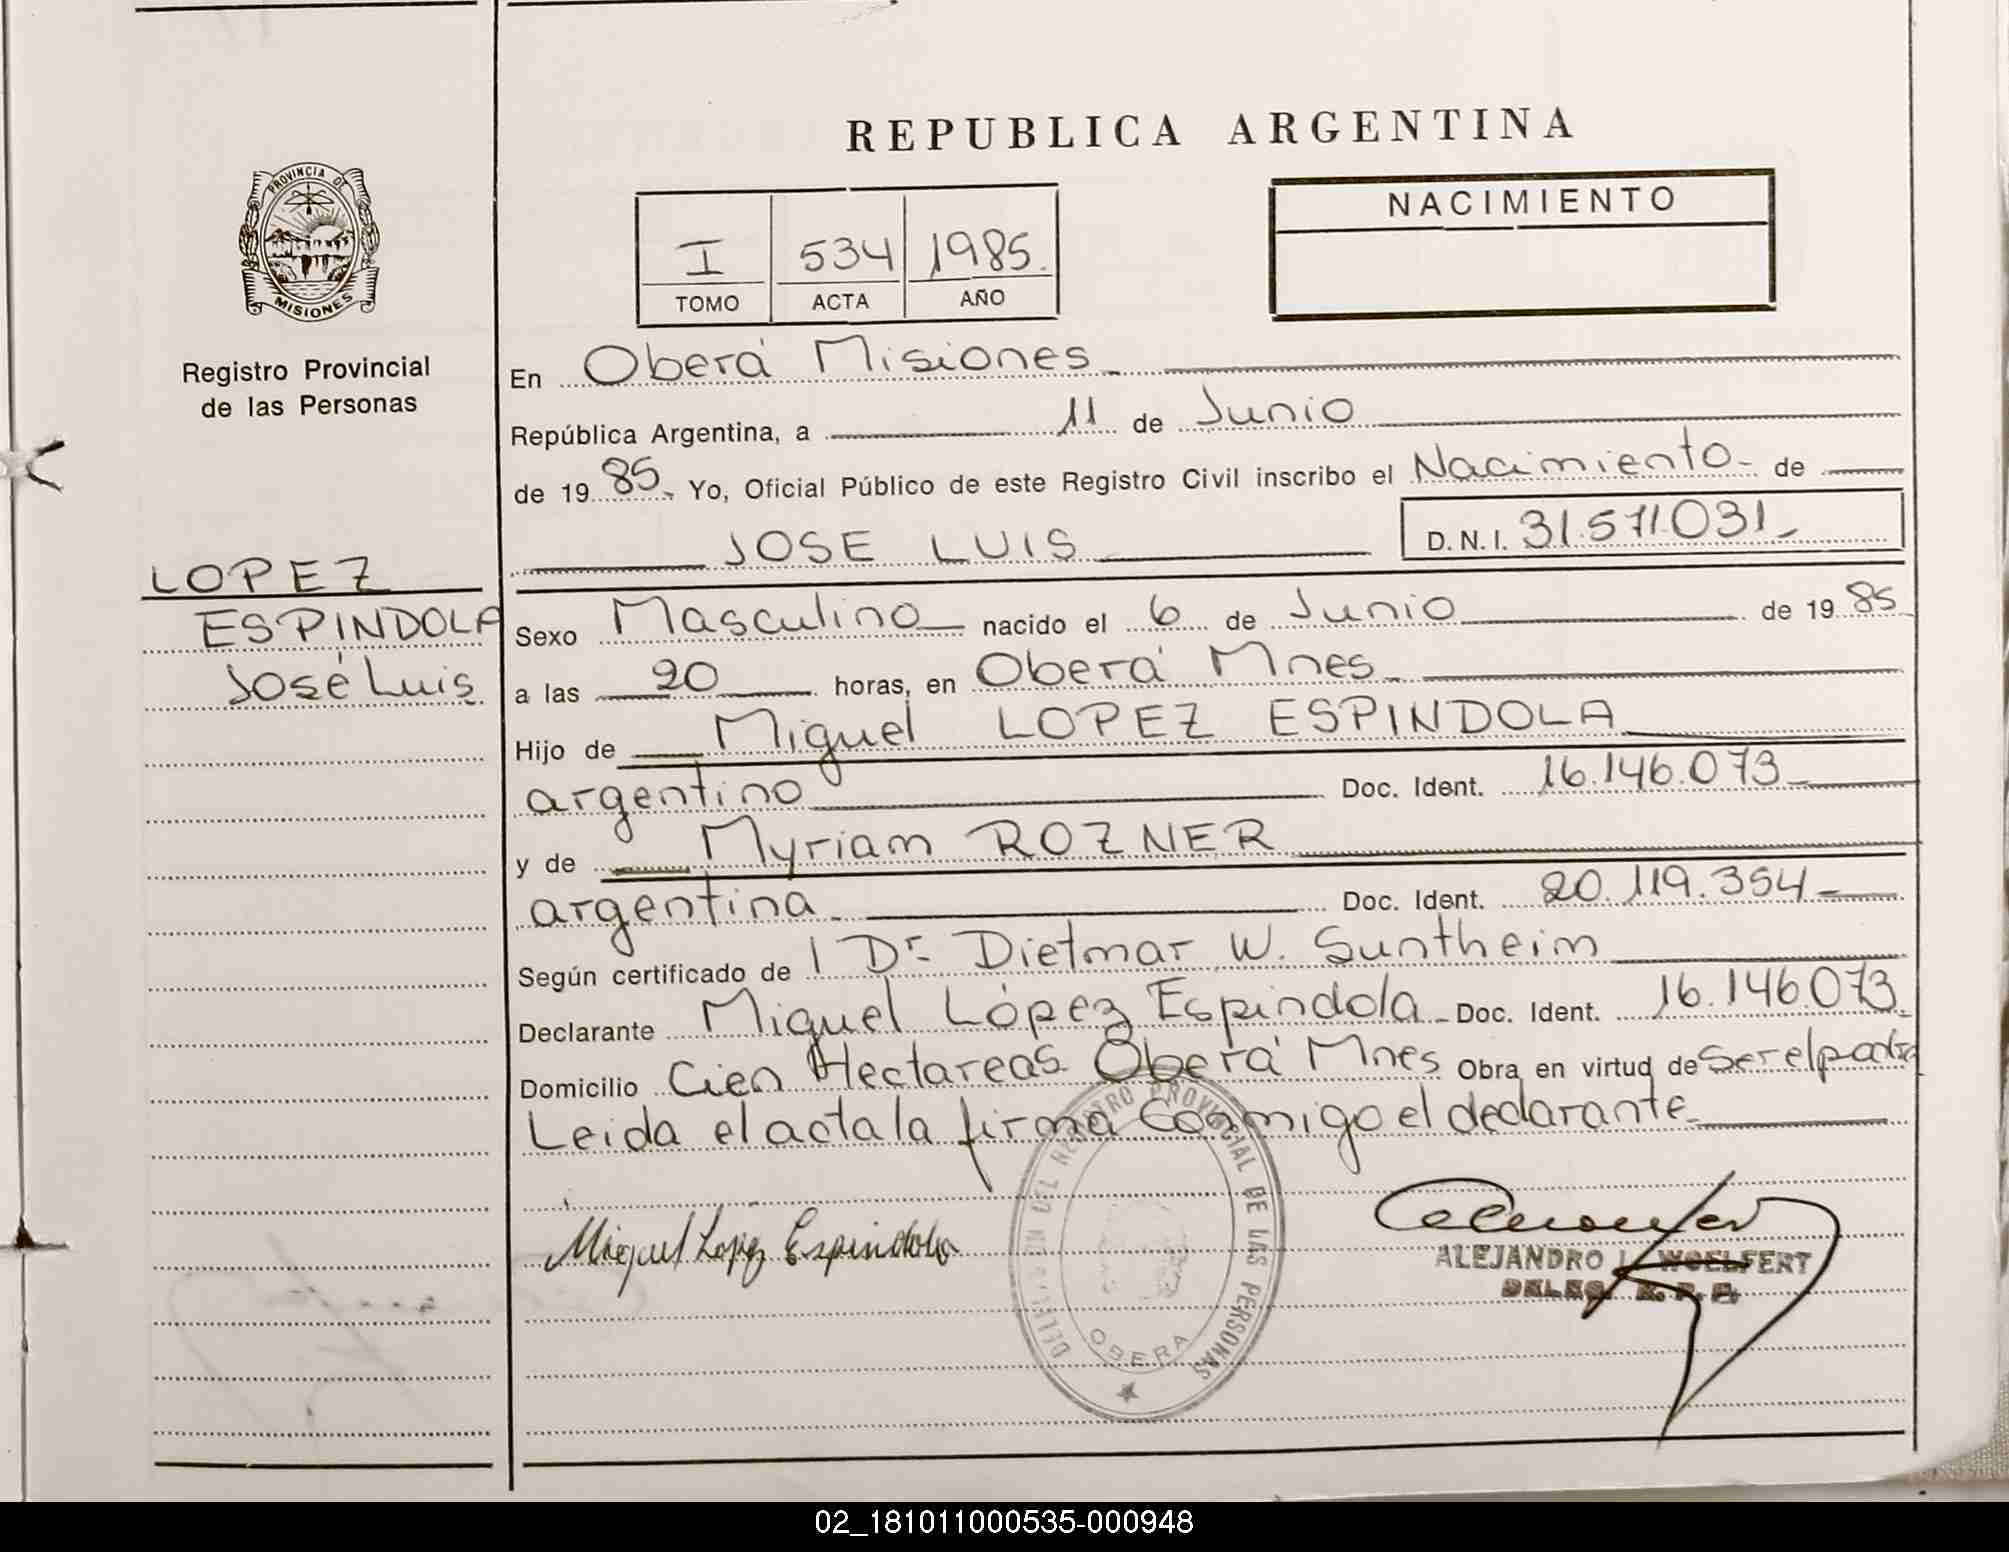 REPUBLICA ARGENTINA
PROVINCIA DE
MISIONES
Registro Provincial
de las Personas
I 534 1985.
TOMO ACTA AÑO
NACIMIENTO
LOPEZ
ESPINDOLA
José Luis
En Oberá Misiones
República Argentina, a 11 de Junio
de 19 85. Yo, Oficial Público de este Registro Civil inscribo el Nacimiento de
JOSE LUIS D.N.I. 31.571.031
Sexo Masculino nacido el 6 de Junio de 19 85
a las 20 horas, en Oberá Mnes
Hijo de Miguel LOPEZ ESPINDOLA
argentino Doc. Ident. 16.146.073
y de Myriam ROZNER
argentina Doc. Ident. 20.119.354
Según certificado de Dr. Dietmar W. Suntheim
Declarante Miguel López Espindola Doc. Ident. 16.146.073
Domicilio Cien Hectareas Oberá Mnes Obra en virtud de ser el padre
Leida el acta la firma conmigo el declarante
Miguel Lopez Espindola
DELEGACION DEL REGISTRO PROVINCIAL DE LAS PERSONAS
OBERA
ALEJANDRO WOELFERT
DELEG. R. P. P.
02_181011000535-000948